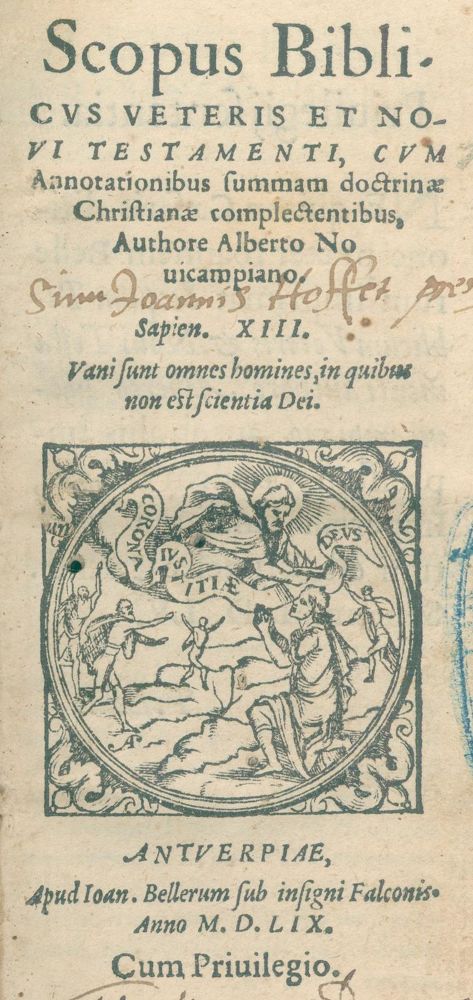 Scopus Bibli-
CVS VETERIS ET NO-
VI TESTAMENTI, CVM
Annotationibus ſummam doctrinæ
Chriſtianæ complectentibus,
Authore Alberto No
uicampiano.
Sum Joannis Hoffet
Sapien. XIII.
Vani ſunt omnes homines, in quibus
non eſt ſcientia Dei.
CORONA
IVSTITIÆ
DEVS
A
ANTVERPIAE,
Apud Ioan. Bellerum ſub inſigni Falconis.
Anno M. D. LIX.
Cum Priuilegio.